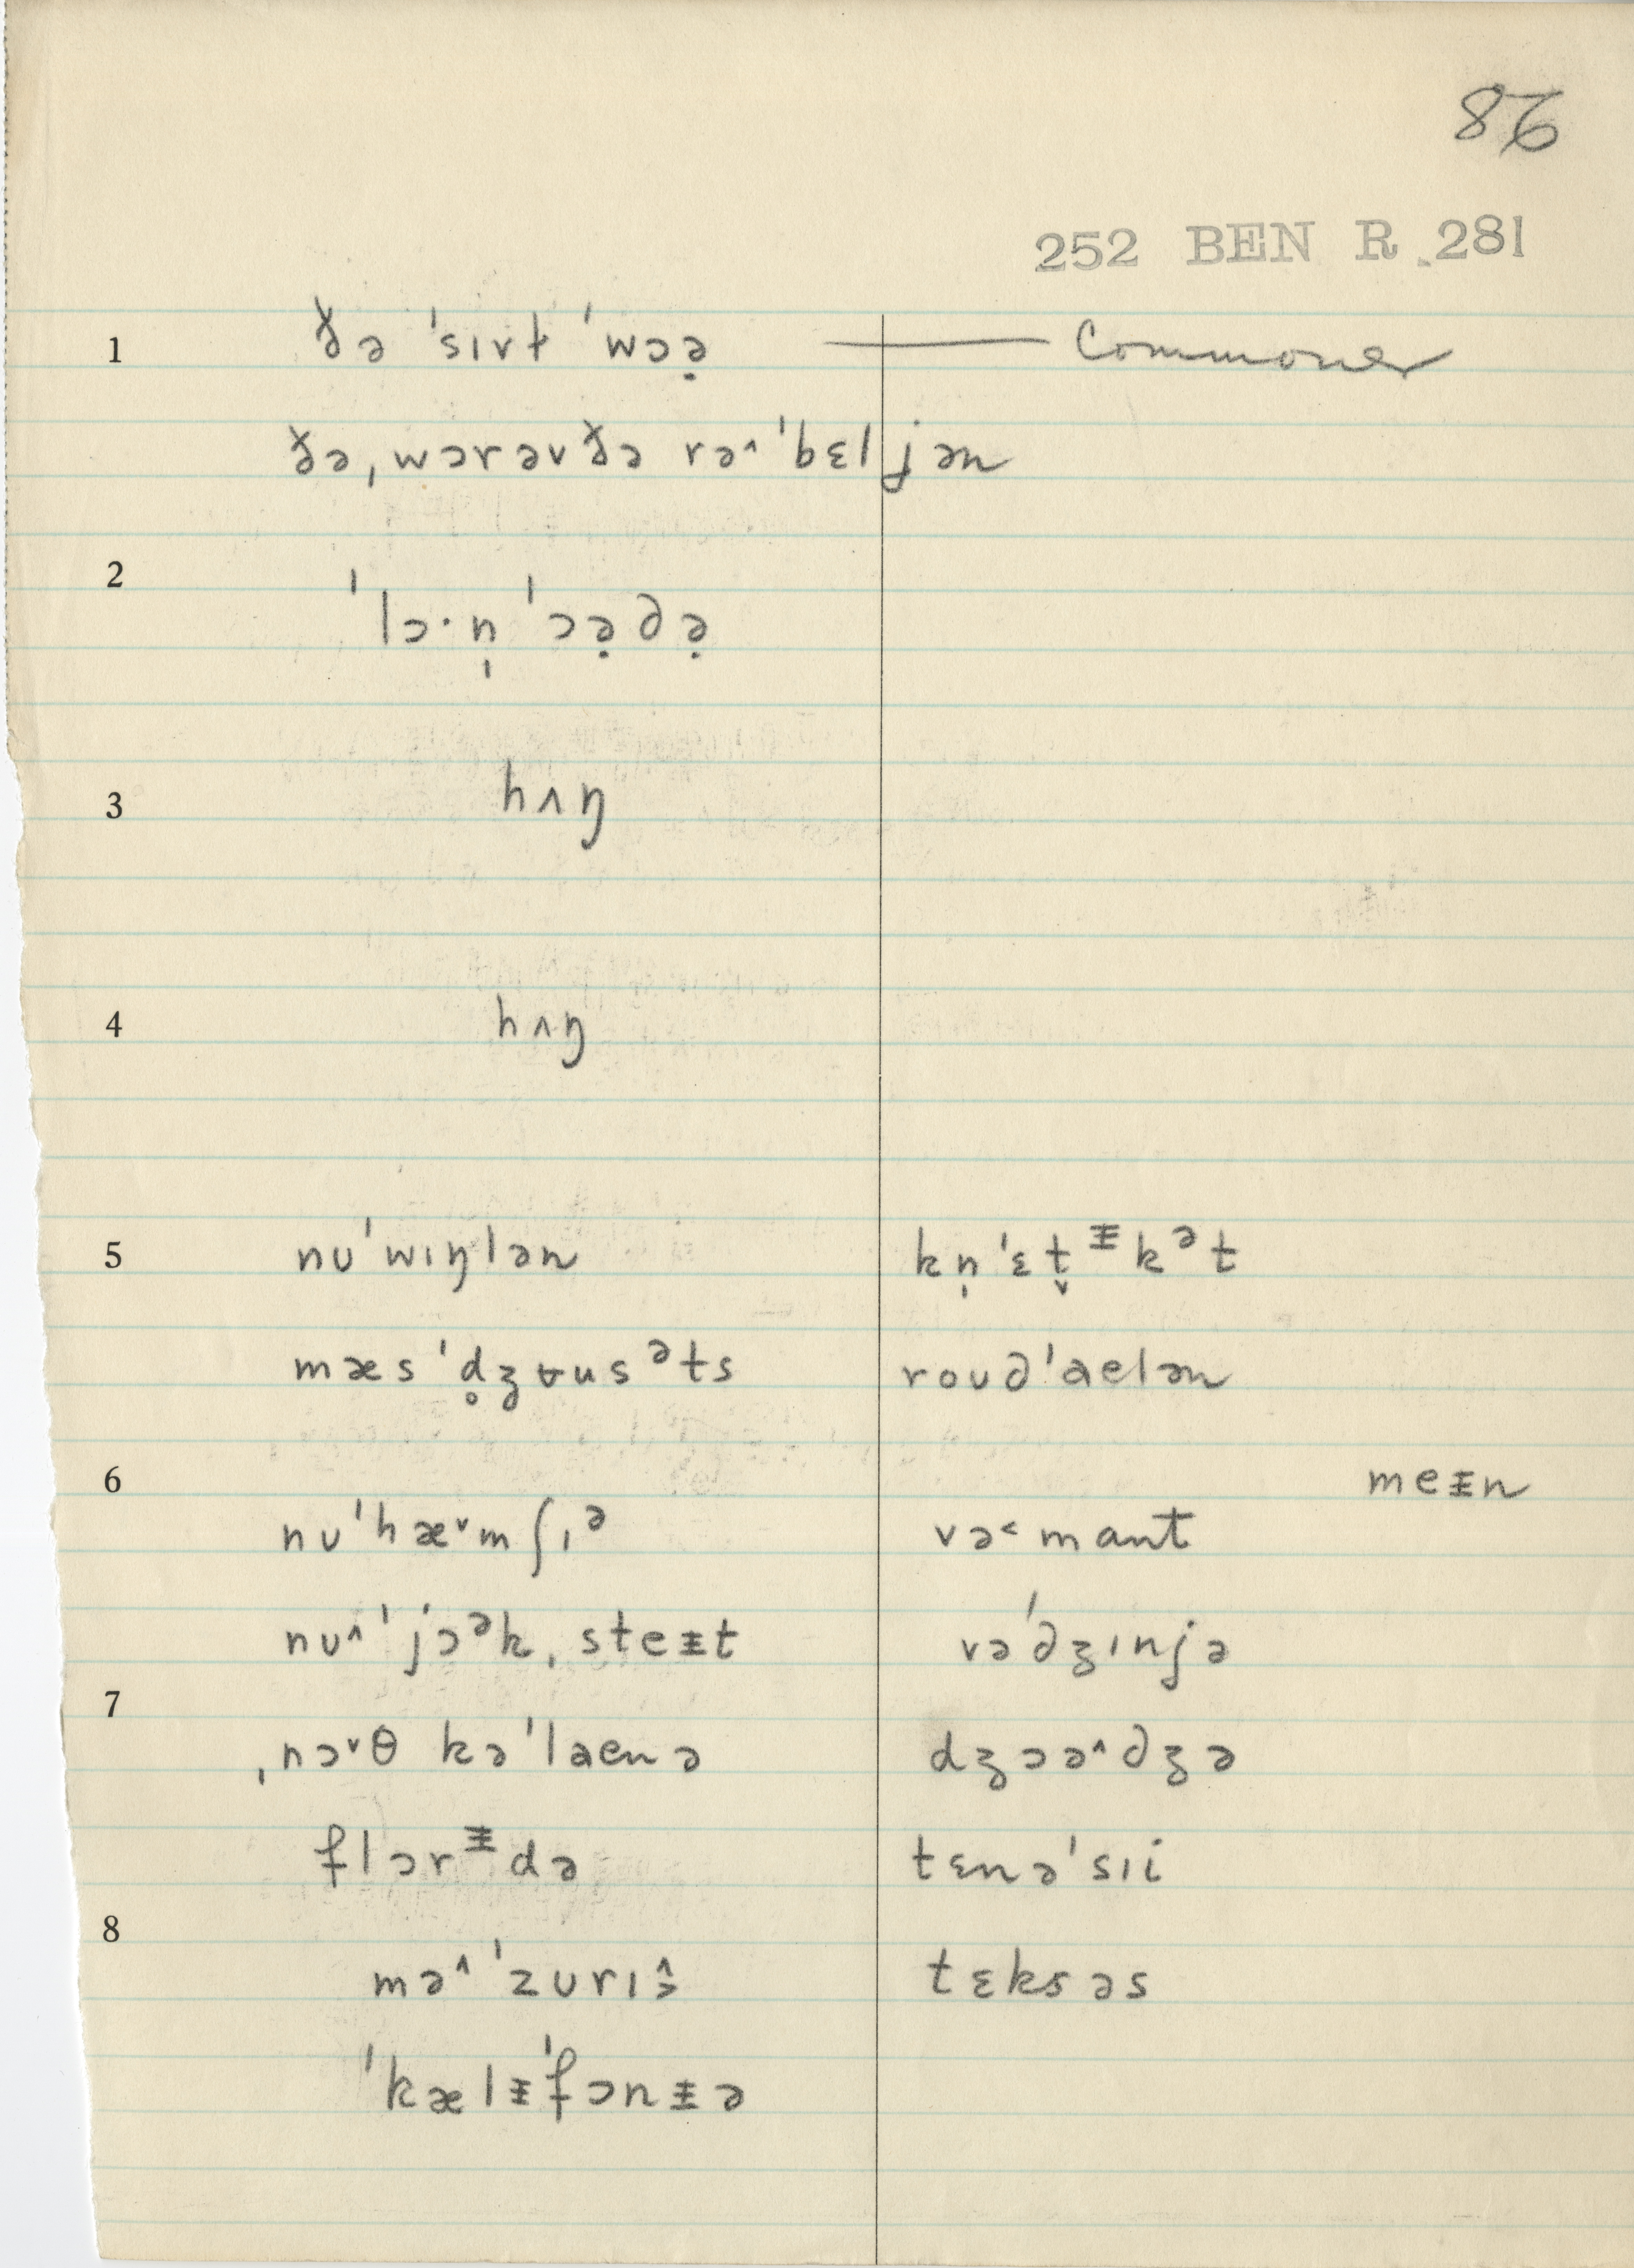 86
252 BEN R 281
1 ðə ˈsɪvɫ ˈwɔə̣ — Commoner
ðə ˌwɔrəvðə rə˄ˈbɛljən
2 ˈlɔ·n̩ ˈɔə̣ðə̣
3 hʌŋ
4 hʌŋ
5 nuˈwɪŋlən kn̩ˈɛt̬ᵻkᵊt
mæsˈd̥ʒʉusᵊts rouðˈaelən
6 meᵻn
nuˈhæ˅mʃɪᵊ və˂mant
nu˄ˈjɔᵊkˌsteᵻt vəˈdʒɪnjə
7 ˌnɔ˅θ kəˈlaenə dʒɔə˄dʒə
flɔrᵻdə tɛnəˈsɪi
8 mə˄ˈzurɪə̂ tɛksəs
ˈkælᵻˈfɔnᵻə